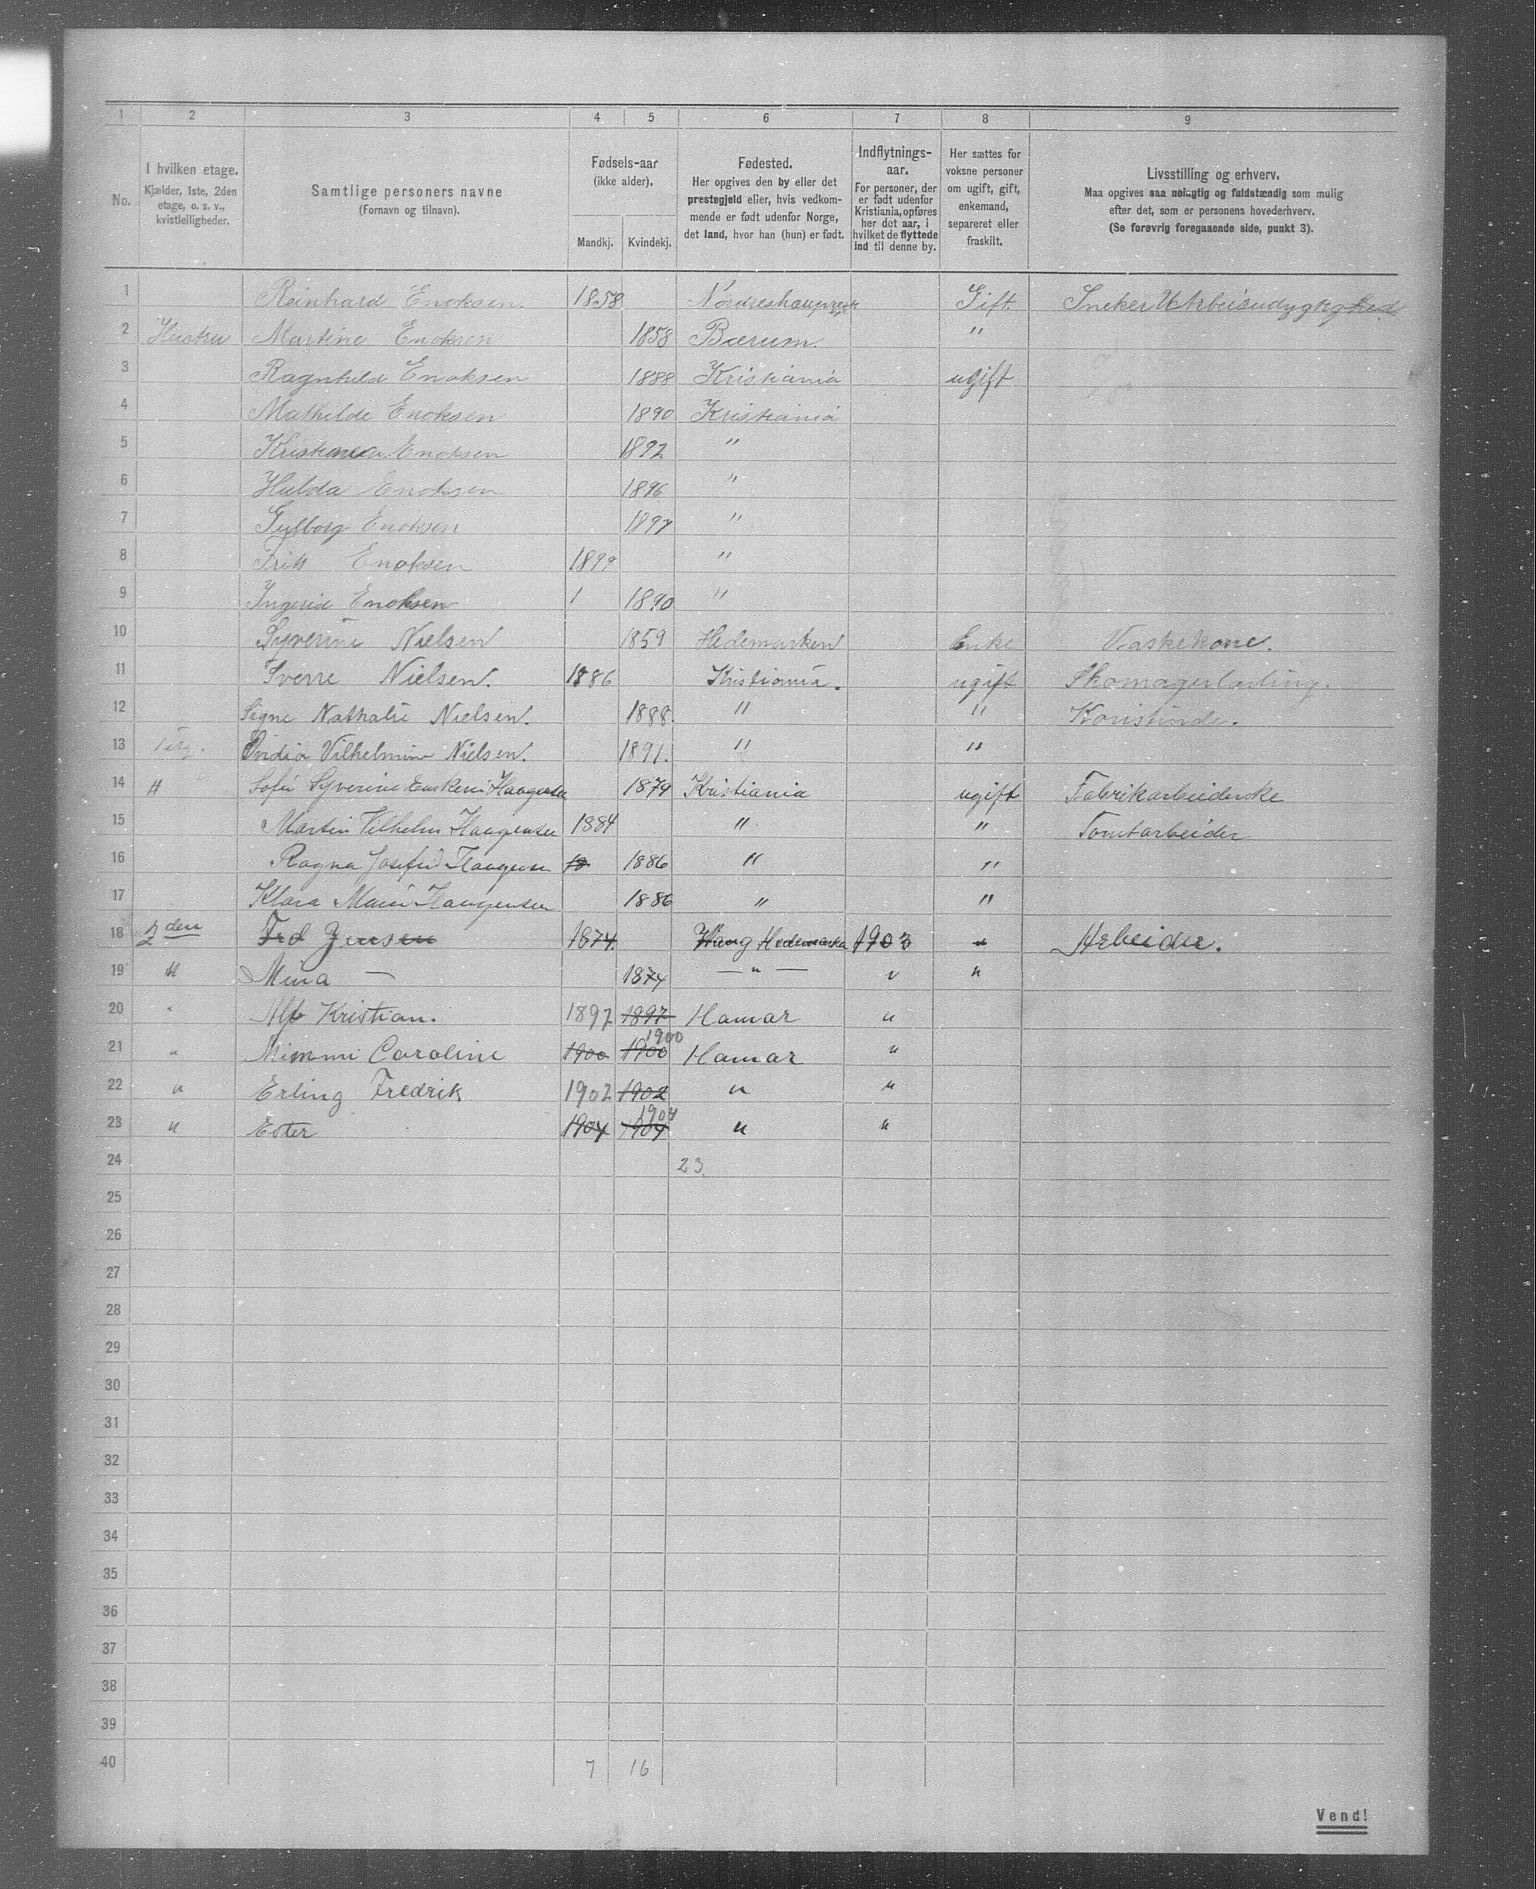 1 2 3 4 5 6 7 8 9
No.
I hvilken etage.
Kjælder, 1ste, 2den
etage, o. s. v.,
kvistleiligheder.
Samtlige personers navne
(Fornavn og tilnavn).
Fødsels-aar
(ikke alder).
Mandkj. Kvindekj.
Fødested.
Her opgives den by eller det
prestegjeld eller, hvis vedkom-
mende er født udenfor Norge,
det land, hvor han (hun) er født.
Indflytnings-
aar.
For personer, der
er født udenfor
Kristiania, opføres
her det aar, i
hvilket de flyttede
ind til denne by.
Her sættes for
voksne personer
om ugift, gift,
enkemand,
separeret eller
fraskilt.
Livsstilling og erhverv.
Maa opgives saa nøiagtig og fuldstændig som mulig
efter det, som er personens hovederhverv.
(Se forøvrig foregaaende side, punkt 3).
1 Reinhard Enoksen. 1858 Gift. Sneker
2 Hustru Martine Enoksen 1858 Bærum. "
3 Ragnhild Enoksen 1888 Kristiania ugift
4 Mathilde Enoksen 1890 Kristiania
5 Enoksen 1892 "
6 Hulda Enoksen 1896 "
7 Gulborg Enoksen 1897 "
8 Enoksen 1899 "
9 Ingerid Enoksen 1 1890 "
10 Syverine Nielsen 1859 Hedemarken Enke Vaskekone.
11 Sverre Nielsen. 1886 Kristiania. ugift Skomagerlærling.
12 Signe Nathalie Nielsen. 1888. " " Kontistinde.
13 Vilhelmine Nielsen. 1891. " "
14 H Sofie Syverine Haagensen 1879 Kristiania ugift Fabrikarbeiderske
15 Martin Vilhelm Haagensen 1884 " " Tomtarbeider
16 Ragna Josefin Haagensen 18 1886 " "
17 Klara Marie Haagensen 1886 " "
18 2den Fred Jensen 1874. Wang Hedemarken 1903 " Arbeider.
19 " Mina — 1874 — " — " "
20 " Alf Kristian. 1897 1897 Hamar "
1900
21 " Mimmi Caroline 1900 1900 Hamar "
22 " Erling Fredrik 1902 1902 " "
1904
23 " Ester 1904 1904 " "
24 23.
25
26
27
28
29
30
31
32
33
34
35
36
37
38
39
40 7 16
Vend!